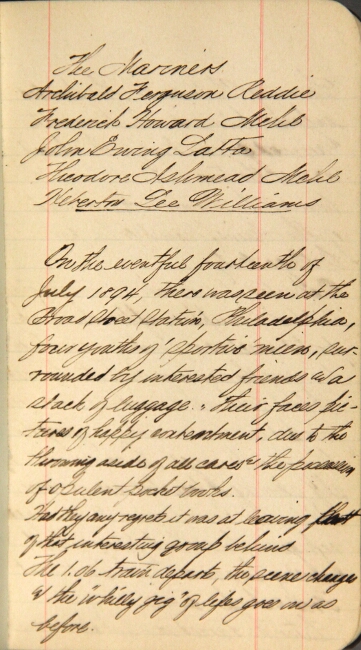 The Mariners.
Archibald Ferguson Reddie
Frederick Howard Mehl
John Ewing Latta
Theodore Ashmead Mehl
Roberton Lee Williams
On the eventful fourteenth of
July 1894, there was seen at the
Broad Street Station, Philadelphia,
four youths of sportive mien, sur-
rounded by interested friends & a
stack of luggage. Their faces pic-
tures of happy contentment, due to the
throwing aside of all cares & the possession
of opulent pocket books.
Had they any regrets it was at leaving part
of that interesting group behind.
The 1.06 train departs, the scene changes
& the whirly gig of life goes on as
before.